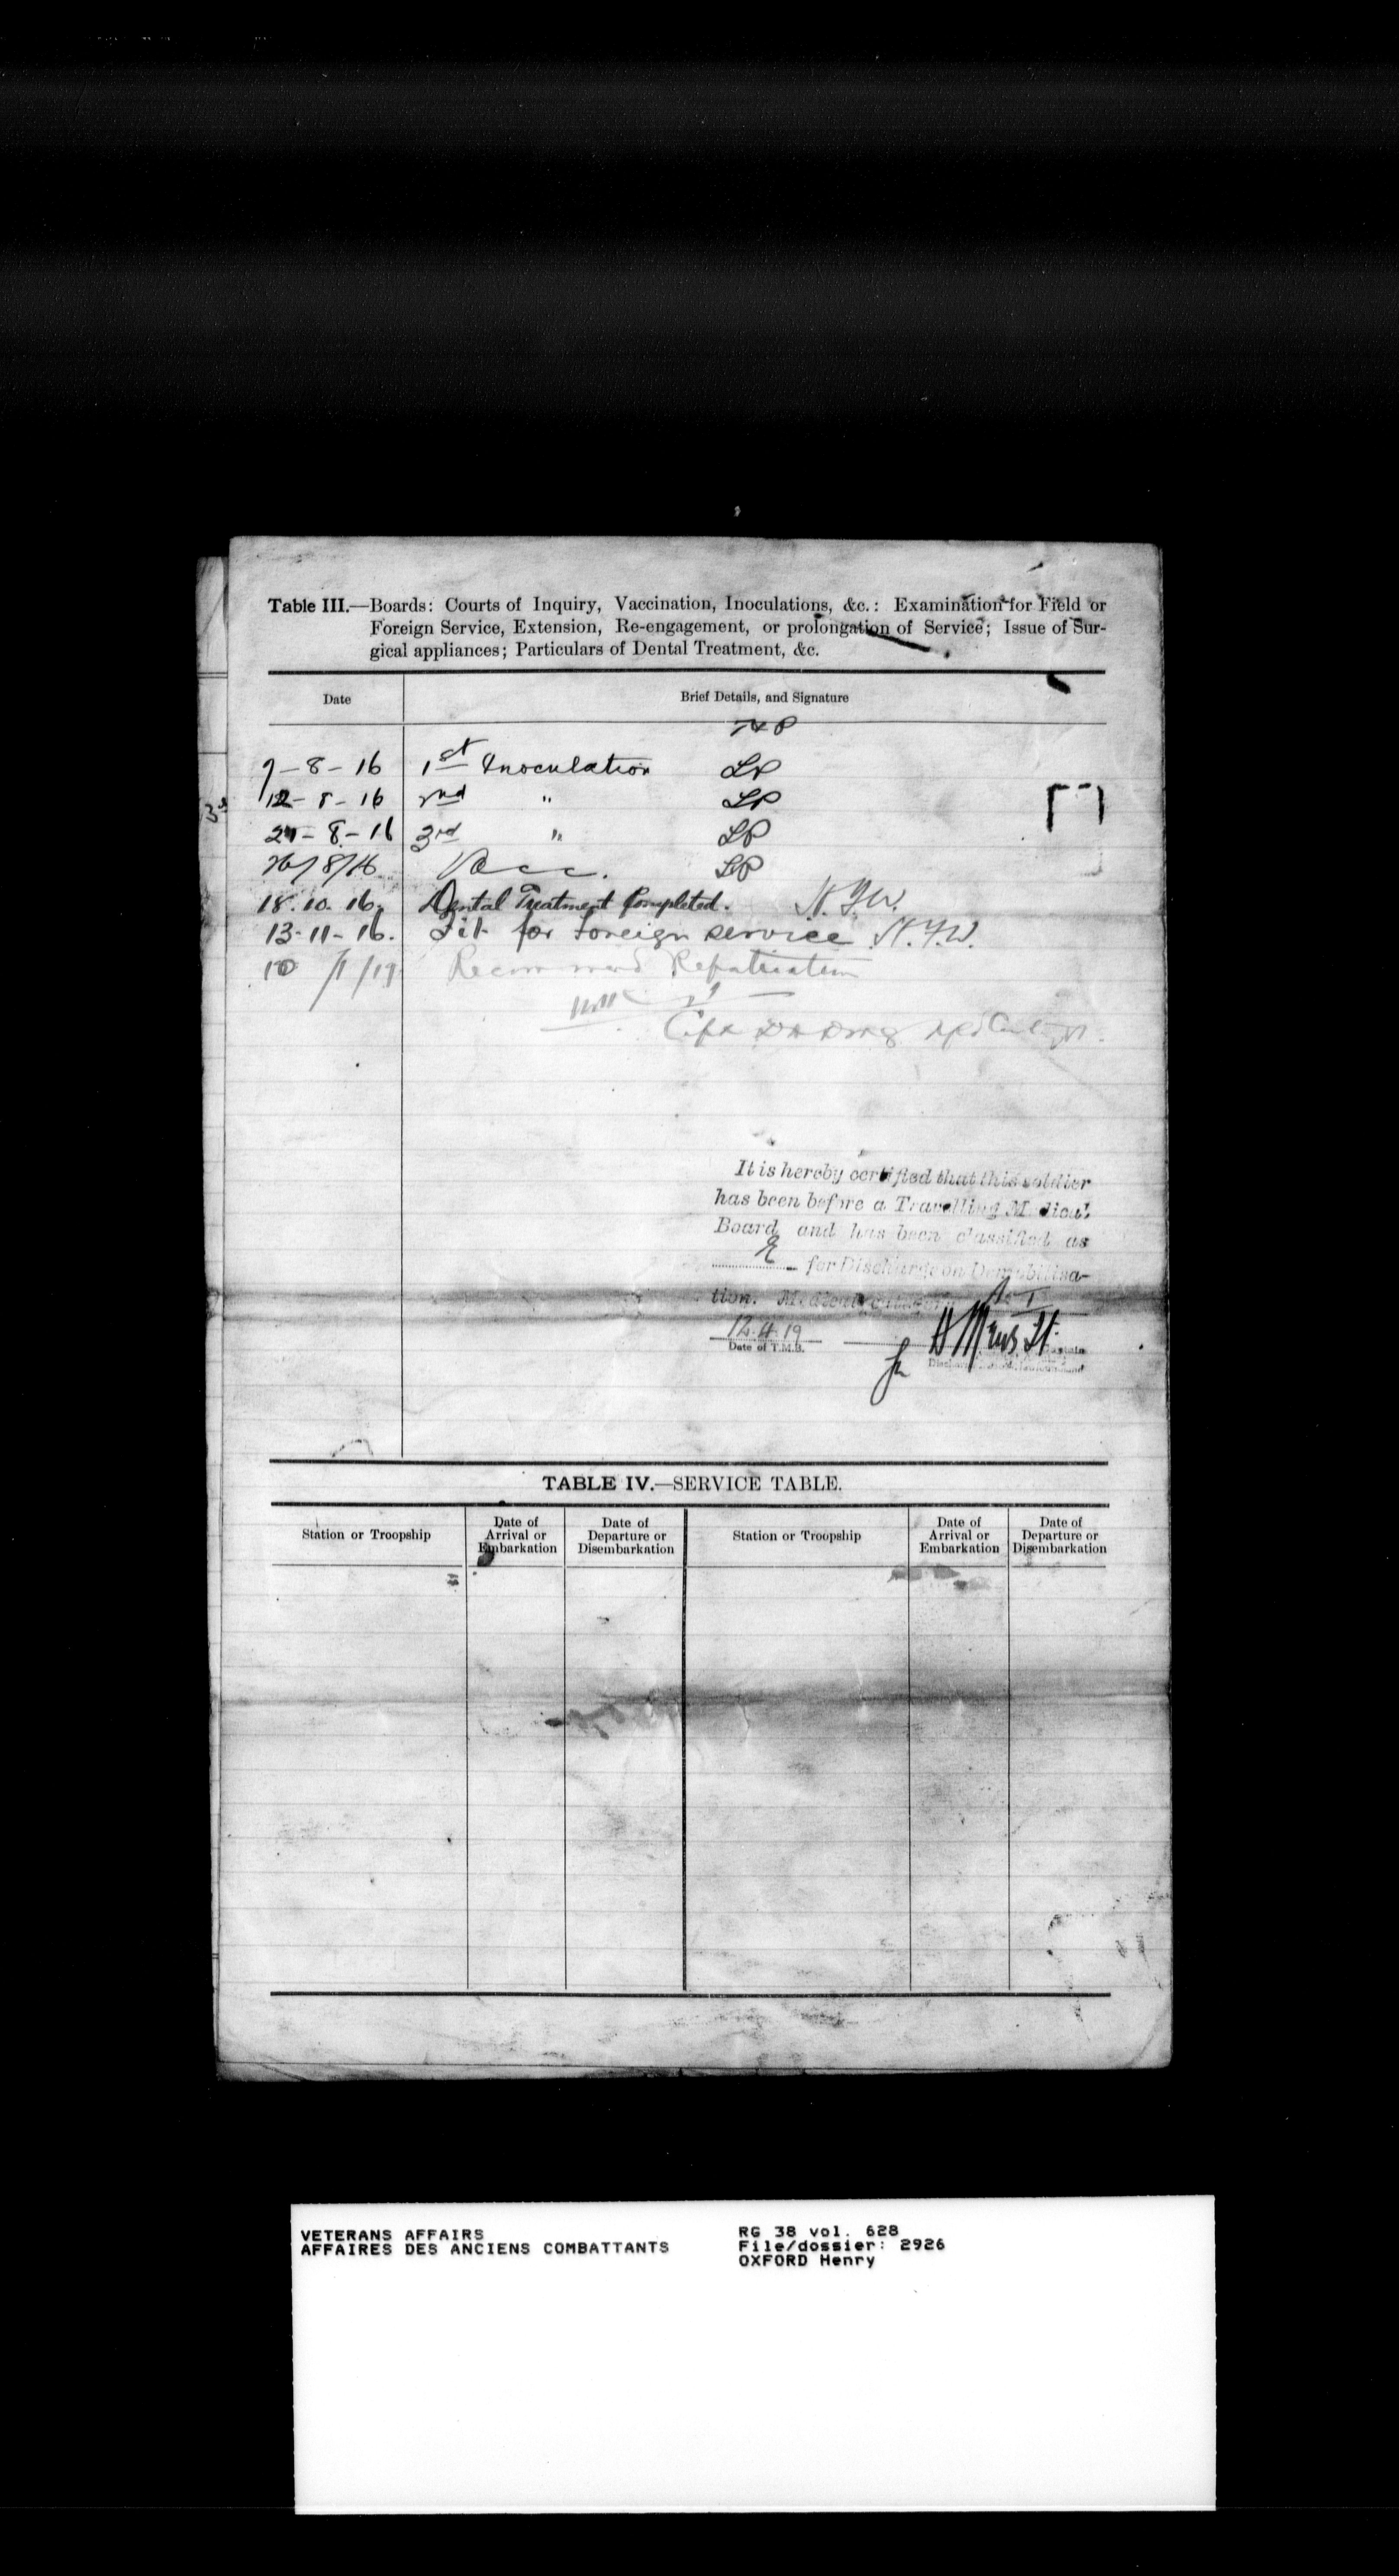 Table III.—Boards: Courts of Inquiry, Vaccination, Inoculations, &c.: Examination for Field or
Foreign Service, Extension, Re-engagement, or prolongation of Service; Issue of Sur-
gical appliances; Particulars of Dental Treatment, &c.
Date Brief Details, and Signature
7-8-16 1st Inoculation LP
12-8-16 2nd " LP
8-16 3rd " LP
26/8/16 Vacc. LP
18.10.16. Dental Treatment Completed. N.F.W.
13-11-16. Fit for Foreign service N.F.W.
10/1/19 Recommend Repatriation
Capt
It is hereby certified that this soldier
has been before a Travelling Medical
Board and has been classified as
E for Discharge on Demobilisa-
tion. Medical
12.4.19
Date of T.M.B.
TABLE IV.—SERVICE TABLE.
Station or Troopship Date of Arrival or Embarkation Date of Departure or Disembarkation Station or Troopship Date of Arrival or Embarkation Date of Departure or Disembarkation
VETERANS AFFAIRS RG 38 vol. 628
AFFAIRES DES ANCIENS COMBATTANTS File/dossier: 2926
OXFORD Henry